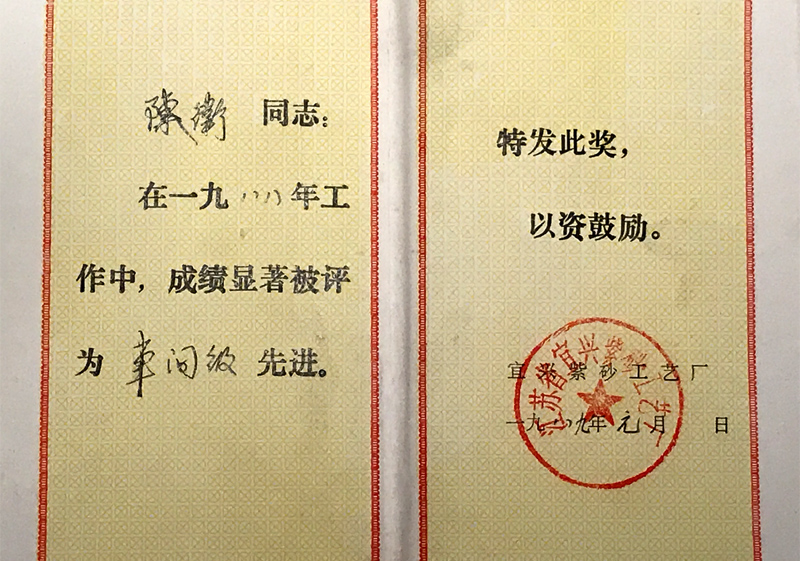 陳衛 同志:
在一九八八年工
作中，成绩显著被评
为 車间级 先进。
特发此奖，
以资鼓励。
宜兴紫砂工艺厂
一九八九年元月 日
江苏省宜兴紫砂工艺